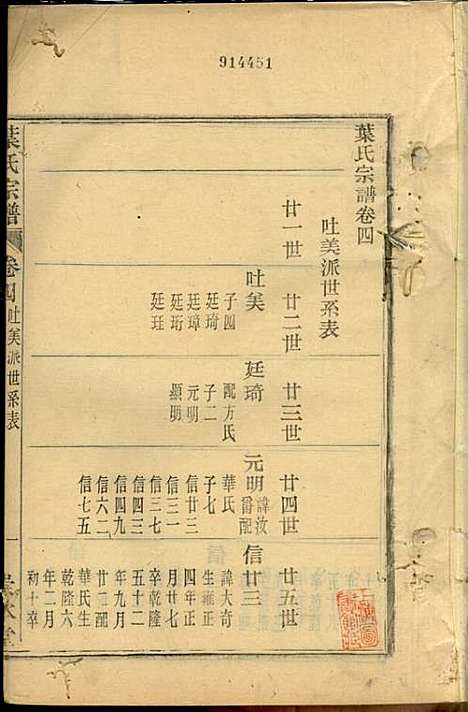 914451
葉氏宗譜卷四
吐美派世系表
廿一世
廿二世
廿三世
廿四世
廿五世
吐美
子四
廷琦
廷璋
廷珩
廷玨
廷琦
配方氏
子二
元明
顯明
元明
諱汝
配
華氏
子七
信廿三
信三一
信三七
信四三
信四九
信六二
信七五
信廿三
諱大奇
生雍正
四年正
月廿七
卒乾隆
五十二
年九月
廿三配
華氏生
乾隆六
年二月
初十卒
葉氏宗譜
卷四
吐美派世系表
一